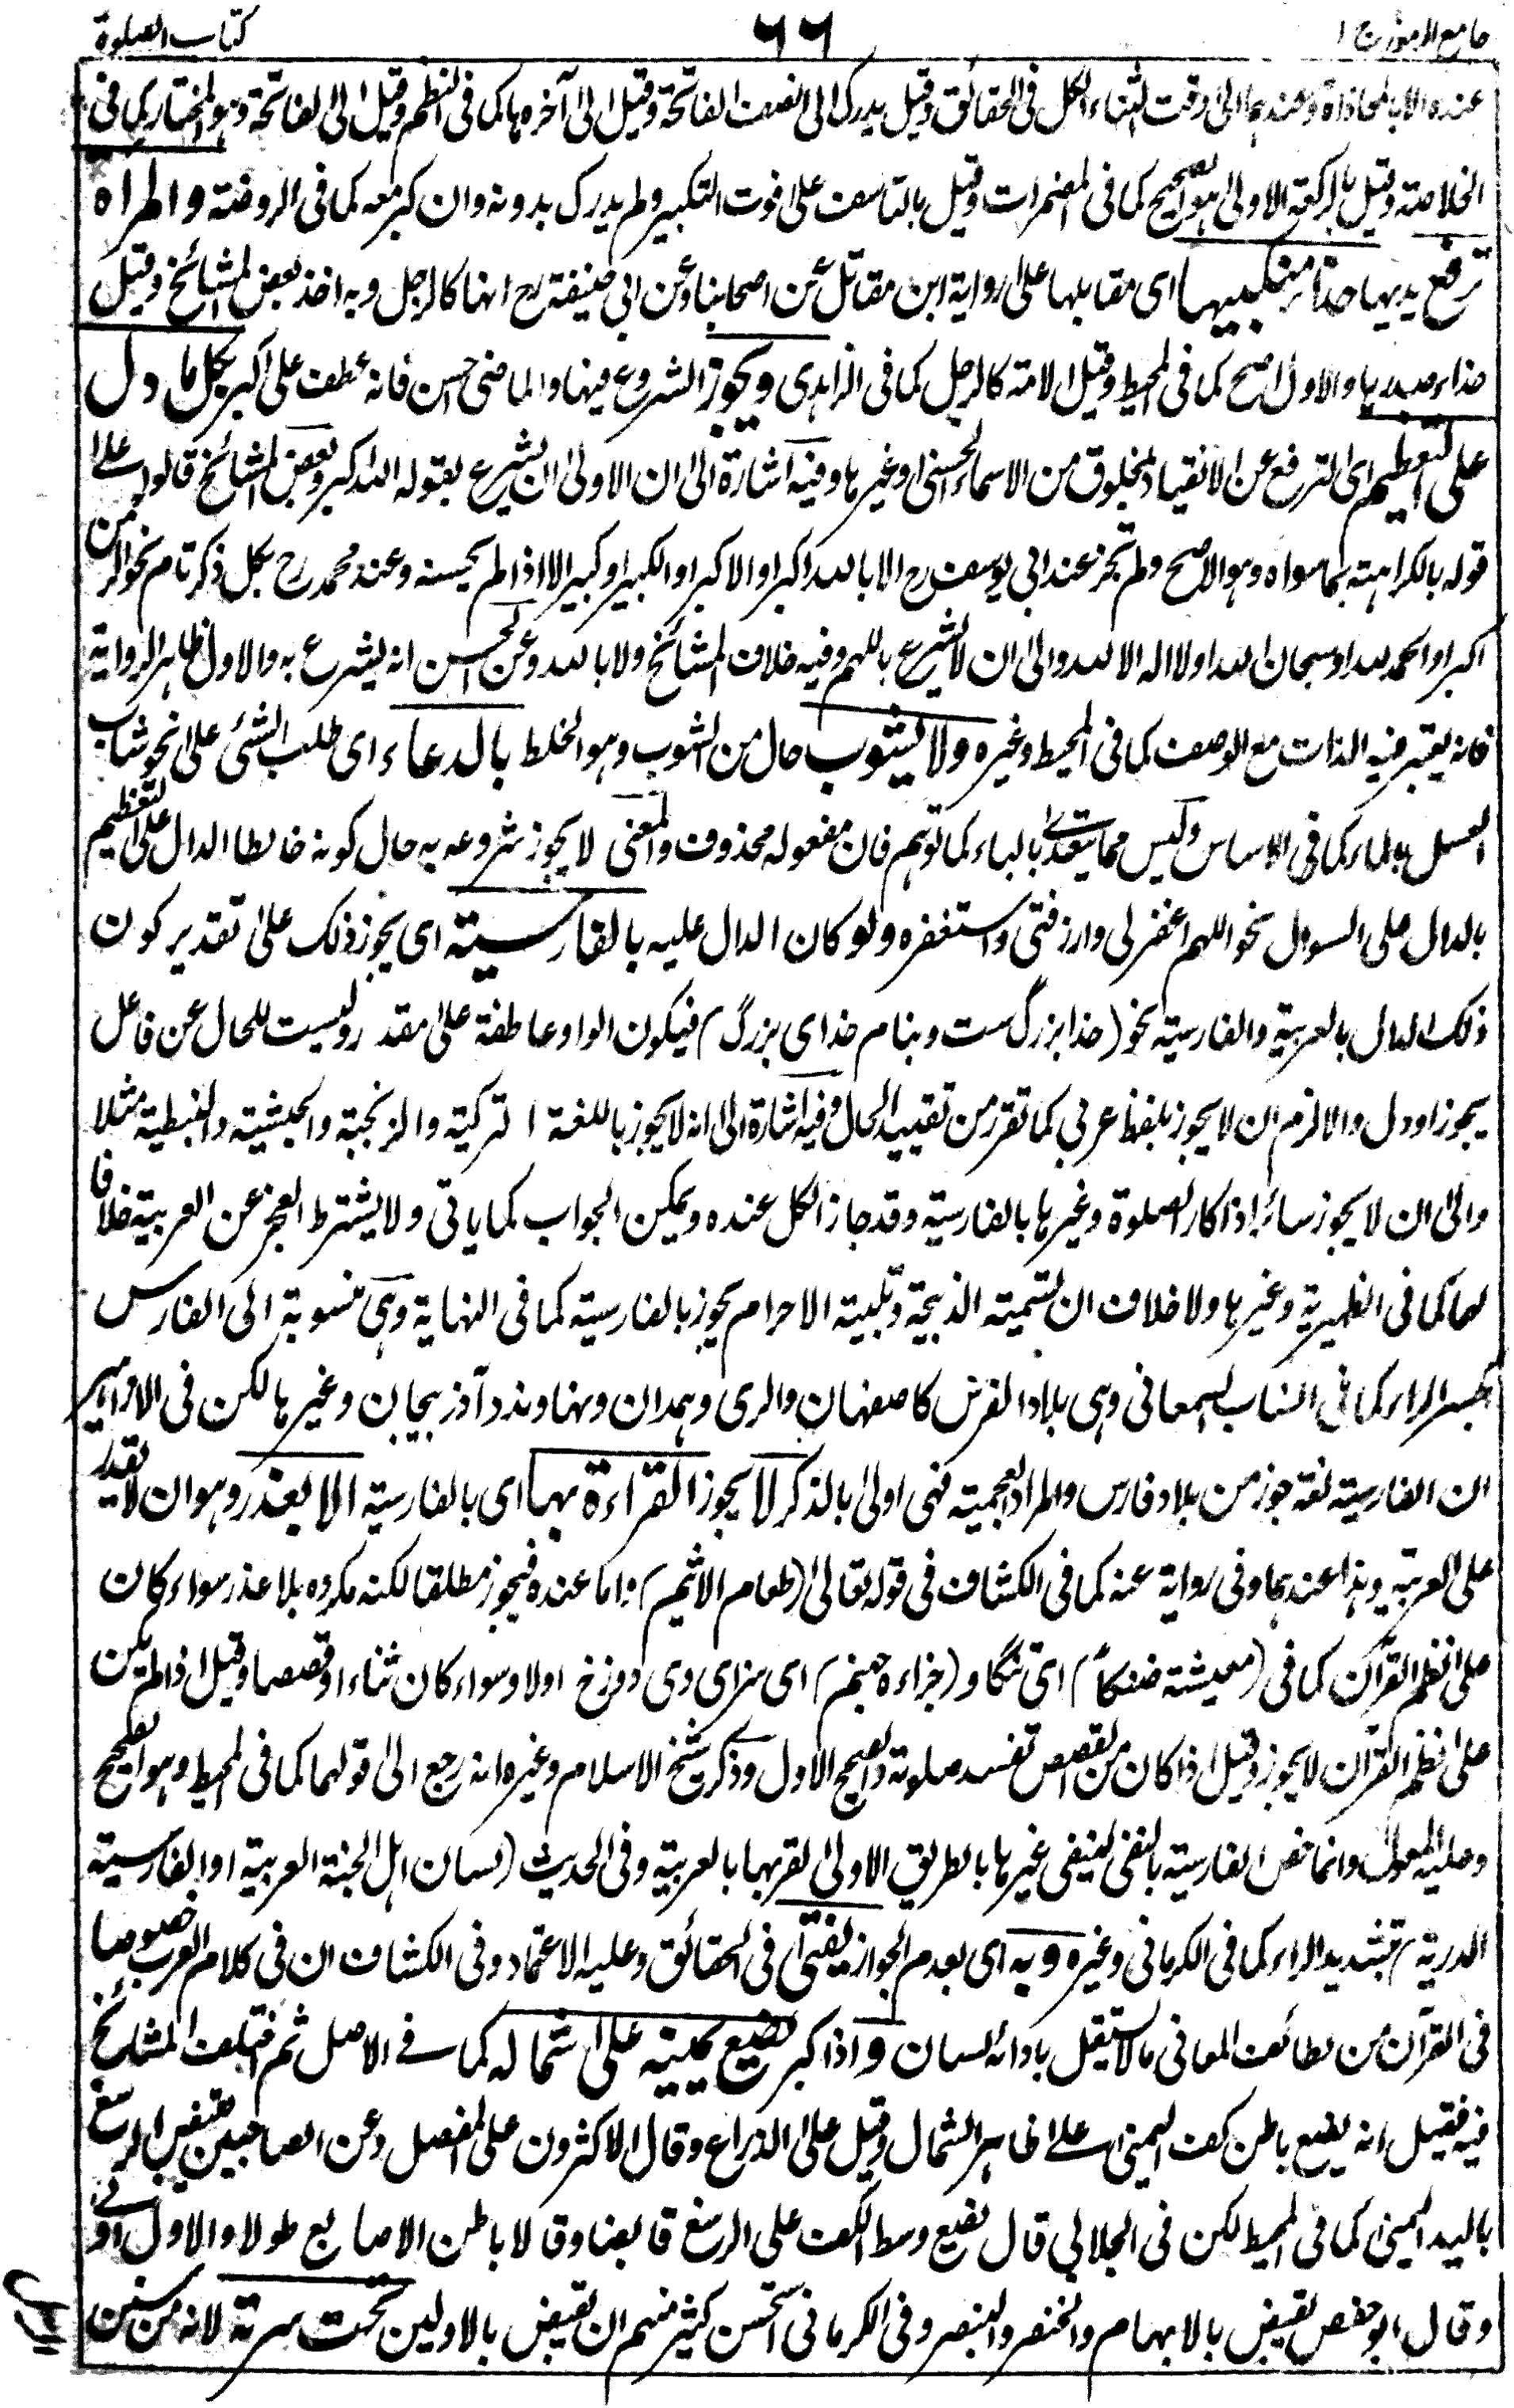 جامع الرموز ج ١
٦٦
كتاب الصلوة
عنده الا بالمحاذاة وعندهما الى وقت الثناء الكل فى الحقائق وقيل يدرك الى نصف الفاتحة وقيل الى آخرها كما فى النظم وقيل الى الفاتحة وهو المختار كما فى
الخلاصة وقيل بالركعة الاولى هو الصحيح كما فى المضمرات وقيل بالتاسف على فوت التكبير ولم يدرك بدونه وان كبر معه كما فى الروضة والمراة
ترفع يديها حذاء منكبيها اى مقابلها على رواية ابن مقاتل عن اصحابنا وعن ابى حنيفة رح انها كالرجل وبه اخذ بعض المشائخ وقيل
حذاء صدرها والاول اصح كما فى المحيط وقيل الامة كالرجل كما فى الزاهدى ويجوز الشروع فيها والماضى احسن فانه عطف على اكبر بكل ما دل
على التعظيم اى الترفع عن الانقياد لمخلوق من الاسماء الحسنى او غيرها وفيه اشارة الى ان الاولى ان يشرع بقوله الله اكبر وبعض المشائخ قالوا على
قوله بالكراهة بما سواه وهو الاصح ولم تجز عند ابى يوسف رح الا بالله اكبر او الاكبر او الكبير او كبير الا اذا لم يحسنه وعند محمد رح بكل ذكر تام نحو الرحمن
اكبر او الحمد لله او سبحان الله او لا اله الا الله والى ان لا يشرع باللهم وفيه خلاف المشائخ ولا بالله وعن الحسن انه يشرع به والاول ظاهر الرواية
فانه يعتبر فيه الذات مع الوصف كما فى المحيط وغيره ولا يشوب حال من الشوب وهو الخلط بالدعاء اى طلب الشئ على نحو شاب
العسل بالماء كما فى الاساس وليس مما يتعدى بالباء كما توهم فان مفعوله محذوف والمعنى لا يجوز شروعه به حال كونه خالطا الدال على التعظيم
بالدال على السوال نحو اللهم اغفرلى وارزقنى واستغفره ولو كان الدال عليه بالفارسية اى يجوز ذلك على تقدير كون
ذلك الدال بالعربية والفارسية نحو (خدا بزرگ ست وبنام خداى بزرگ) فيكون الواو عاطفة على مقدر وليست للحال عن فاعل
يجوز او دل والا لزم ان لا يجوز بلفظ عربى كما تقرر من تقييد الحال وفيه اشارة الى انه لا يجوز باللغة التركية والزنجية والحبشية والنبطية مثلا
والى ان لا يجوز سائر اذكار الصلوة وغيرها بالفارسية وقد جاز الكل عنده ويمكن الجواب كما ياتى ولا يشترط العجز عن العربية خلافا
لهما كما فى الظهيرية وغيرها ولا خلاف ان تسمية الذبيحة وتلبية الاحرام يجوز بالفارسية كما فى النهاية وهى منسوبة الى الفارس
بكسر الراء كما فى انساب السمعانى وهى بلاد الفرس كاصفهان والرى وهمدان ونهاوند وآذربيجان وغيرها لكن فى
ان الفارسية لغة خوز من بلاد فارس والمراد العجمية فهى اولى بالذكر لا يجوز القراءة بها اى بالفارسية الا بعذر وهو ان لا يقدر
على العربية وهذا عندهما وفى رواية عنه كما فى الكشاف فى قوله تعالى (طعام الاثيم) واما عنده فيجوز مطلقا لكنه مكروه بلا عذر سواء كان
على نظم القرآن كما فى (معيشة ضنكاً) اى تنگا و (جزاءه جهنم) اى سزاى وى دوزخ اولا وسواء كان ثناء او قصصا وقيل اذا لم يكن
على نظم القرآن لا يجوز وقيل اذا كان من القصص تفسد صلوته والصحيح الاول وذكر شيخ الاسلام وغيره انه رجع الى قولهما كما فى المحيط وهو الصحيح
وعليه المعول وانما خص الفارسية بالنفى لينفى غيرها بالطريق الاولى لقربها بالعربية وفى الحديث (لسان اهل الجنة العربية او الفارسية
الدرية) بتشديد الراء كما فى الكرمانى وغيره وبه اى بعدم الجواز يفتى فى الحقائق وعليه الاعتماد وفى الكشاف ان فى كلام العرب خصوصا
فى القرآن من لطائف المعانى ما لا يستقل بادائه لسان واذا كبر يضع يمينه على شماله كما فى الاصل ثم اختلف المشائخ
فيه فقيل انه يضع باطن كف اليمنى على ظاهر الشمال وقيل على الذراع وقال الاكثرون على المفصل وعن الصاحبين يقبض الرسغ
باليد اليمنى كما فى المحيط لكن فى الجلابى قال يضع وسط الكف على الرسغ قابضا وقالا باطن الاصابع طولا والاول اولى
وقال ابو حفص يقبض بالابهام والخنصر والبنصر وفى الكرمانى استحسن كثير منهم ان يقبض بالاولين تحت سرته لانه من سنن